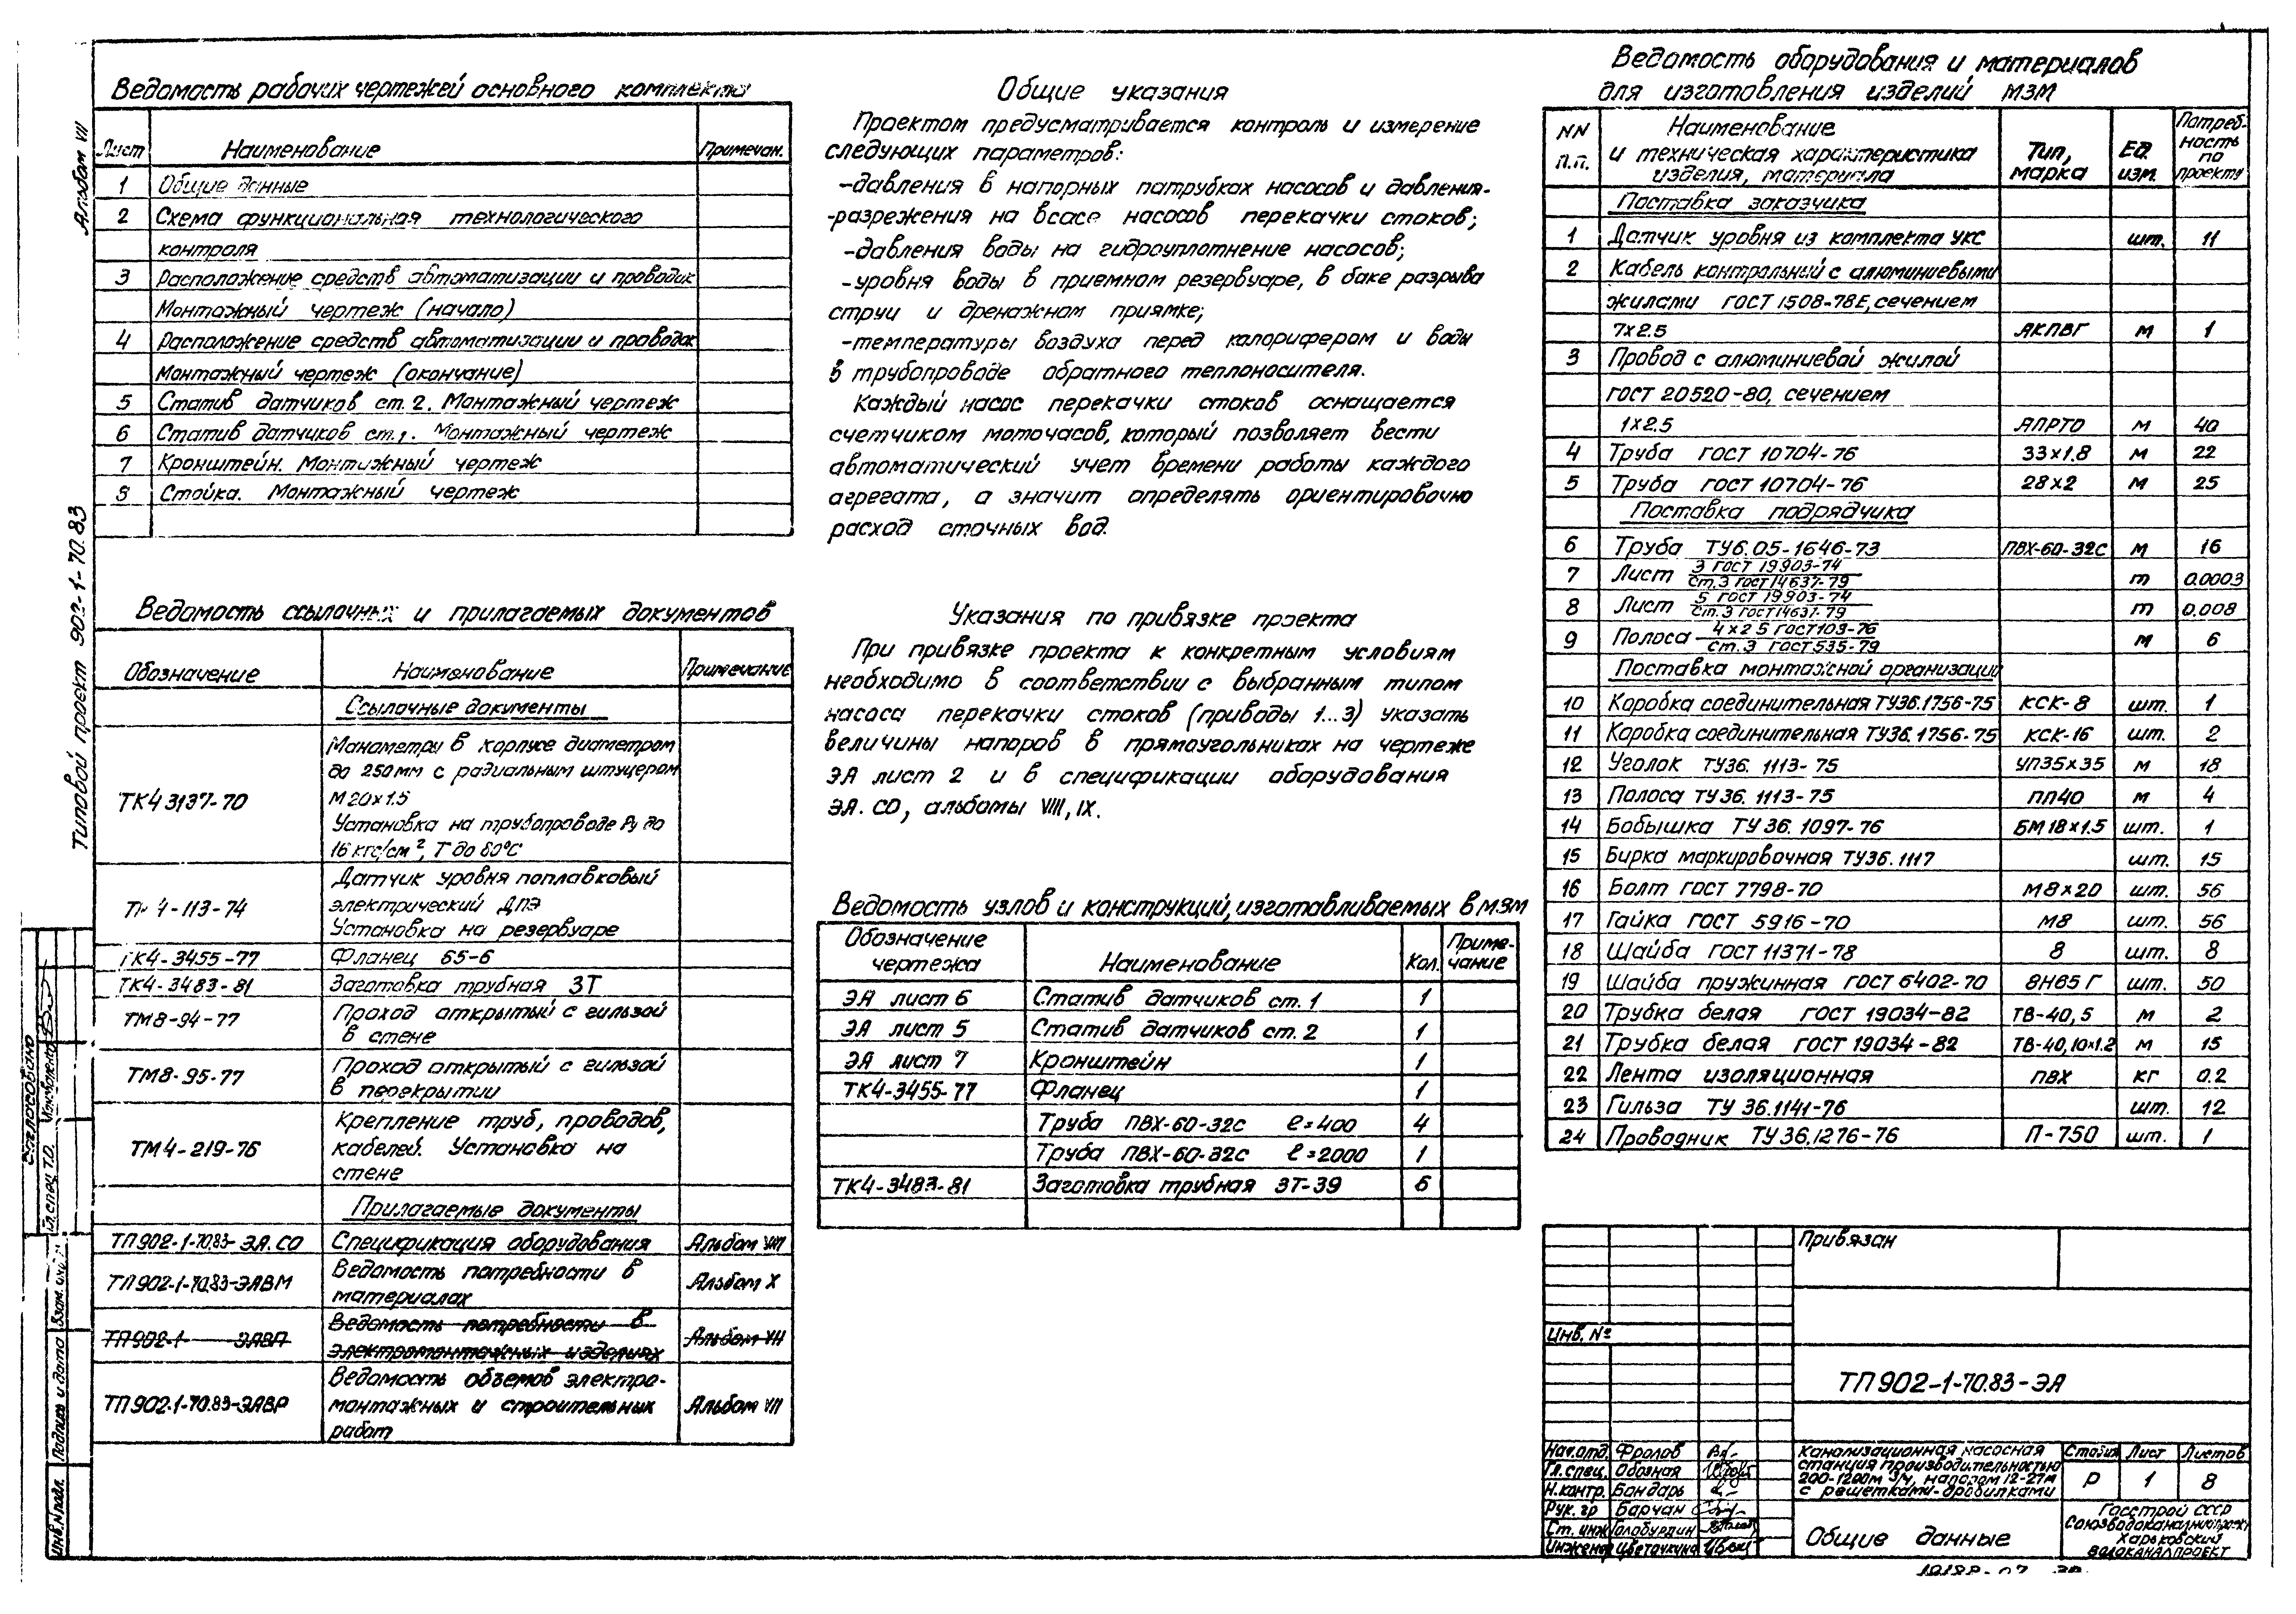 Альбом VII
Типовой проект 902-1-70.83
Ведомость рабочих чертежей основного комплекта
Лист Наименование Примечан.
1 Общие данные
2 Схема функциональная технологического
контроля
3 Расположение средств автоматизации и проводок
Монтажный чертеж (начало)
4 Расположение средств автоматизации и проводок
Монтажный чертеж (окончание)
5 Статив датчиков ст. 2. Монтажный чертеж
6 Статив датчиков ст. 1. Монтажный чертеж
7 Кронштейн. Монтажный чертеж
8 Стойка. Монтажный чертеж
Ведомость ссылочных и прилагаемых документов
Обозначение Наименование Примечание
Ссылочные документы
ТК4 3137-70 Манометры в корпусе диаметром
до 250мм с радиальным штуцером
М20х1.5
Установка на трубопроводе Ру до
16 кгс/см², Т до 80°С
4-113-74 Датчик уровня поплавковый
электрический ДПЭ
Установка на резервуаре
ТК4-3455-77 Фланец 65-6
ТК4-3483-81 Заготовка трубная ЗТ
ТМ8-94-77 Проход открытый с гильзой
в стене
ТМ8-95-77 Проход открытый с гильзой
в перекрытии
ТМ4-219-76 Крепление труб, проводов,
кабелей. Установка на
стене
Прилагаемые документы
ТП902-1-70.83-ЭА.СО Спецификация оборудования Альбом VIII
ТП902-1-70.83-ЭАВМ Ведомость потребности в
материалах Альбом X
ТП902-1 ЭАВП Ведомость потребности в
электромонтажных изделиях Альбом VII
ТП902-1-70.83-ЭАВР Ведомость объемов электро-
монтажных и строительных
работ Альбом VII
Общие указания
Проектом предусматривается контроль и измерение
следующих параметров:
-давления в напорных патрубках насосов и давления-
-разрежения на всасе насосов перекачки стоков;
-давления воды на гидроуплотнение насосов;
-уровня воды в приемном резервуаре, в баке разрыва
струи и дренажном приямке;
-температуры воздуха перед калорифером и воды
в трубопроводе обратного теплоносителя.
Каждый насос перекачки стоков оснащается
счетчиком моточасов, который позволяет вести
автоматический учет времени работы каждого
агрегата, а значит определять ориентировочно
расход сточных вод.
Указания по привязке проекта
При привязке проекта к конкретным условиям
необходимо в соответствии с выбранным типом
насоса перекачки стоков (приводы 1...3) указать
величины напоров в прямоугольниках на чертеже
ЭА лист 2 и в спецификации оборудования
ЭА.СО, альбомы VIII, IX.
Ведомость узлов и конструкций, изготавливаемых в МЗМ
Обозначение
чертежа Наименование Кол. Приме-
чание
ЭА лист 6 Статив датчиков ст. 1 1
ЭА лист 5 Статив датчиков ст. 2 1
ЭА лист 7 Кронштейн 1
ТК4-3455-77 Фланец 1
Труба ПВХ-60-32с ℓ=400 4
Труба ПВХ-60-32с ℓ=2000 1
ТК4-3483-81 Заготовка трубная ЗТ-39 6
Ведомость оборудования и материалов
для изготовления изделий МЗМ
NN
п.п. Наименование
и техническая характеристика
изделия, материала Тип,
марка Ед.
изм. Потреб-
ность
по
проекту
Поставка заказчика
1 Датчик уровня из комплекта УКС шт. 11
2 Кабель контрольный с алюминиевыми
жилами ГОСТ 1508-78Е, сечением
7х2.5 АКПВГ м 1
3 Провод с алюминиевой жилой
ГОСТ 20520-80, сечением
1х2.5 АПРТО м 40
4 Труба ГОСТ 10704-76 33х1.8 м 22
5 Труба ГОСТ 10704-76 28х2 м 25
Поставка подрядчика
6 Труба ТУ6.05-1646-73 ПВХ-60-32с м 16
7 Лист 3 ГОСТ 19903-74 / Ст.3 ГОСТ 14637-79 т 0.0003
8 Лист 5 ГОСТ 19903-74 / Ст.3 ГОСТ 14637-79 т 0.008
9 Полоса 4х25 ГОСТ 103-76 / Ст.3 ГОСТ 535-79 м 6
Поставка монтажной организации
10 Коробка соединительная ТУ36.1756-75 КСК-8 шт. 1
11 Коробка соединительная ТУ36.1756-75 КСК-16 шт. 2
12 Уголок ТУ36. 1113-75 УП35х35 м 18
13 Полоса ТУ36. 1113-75 ПП40 м 4
14 Бобышка ТУ 36. 1097-76 БМ18х1.5 шт. 1
15 Бирка маркировочная ТУ36.1117 шт. 15
16 Болт ГОСТ 7798-70 М8х20 шт. 56
17 Гайка ГОСТ 5916-70 М8 шт. 56
18 Шайба ГОСТ 11371-78 8 шт. 8
19 Шайба пружинная ГОСТ 6402-70 8Н65Г шт. 50
20 Трубка белая ГОСТ 19034-82 ТВ-40, 5 м 2
21 Трубка белая ГОСТ 19034-82 ТВ-40, 10х1.2 м 15
22 Лента изоляционная ПВХ кг 0.2
23 Гильза ТУ 36.1141-76 шт. 12
24 Проводник ТУ36.1276-76 П-750 шт. 1
Привязан
Инв. №
ТП902-1-70.83-ЭА
Нач.отд. Фролов
Гл.спец. Обозная
Н.контр. Бондарь
Рук. гр Барчан
Ст. инж Голобурдин
Инженер Цветочкина
Канализационная насосная
станция производительностью
200-1200м³/ч, напором 12-27м
с решетками-дробилками
Стадия Лист Листов
Р 1 8
Общие данные
Госстрой СССР
Союзводоканалниипроект
Харьковский
ВОДОКАНАЛПРОЕКТ
Согласовано
Гл.спец Т.О.
Взам. инв.
Подпись и дата
Инв.№подл.